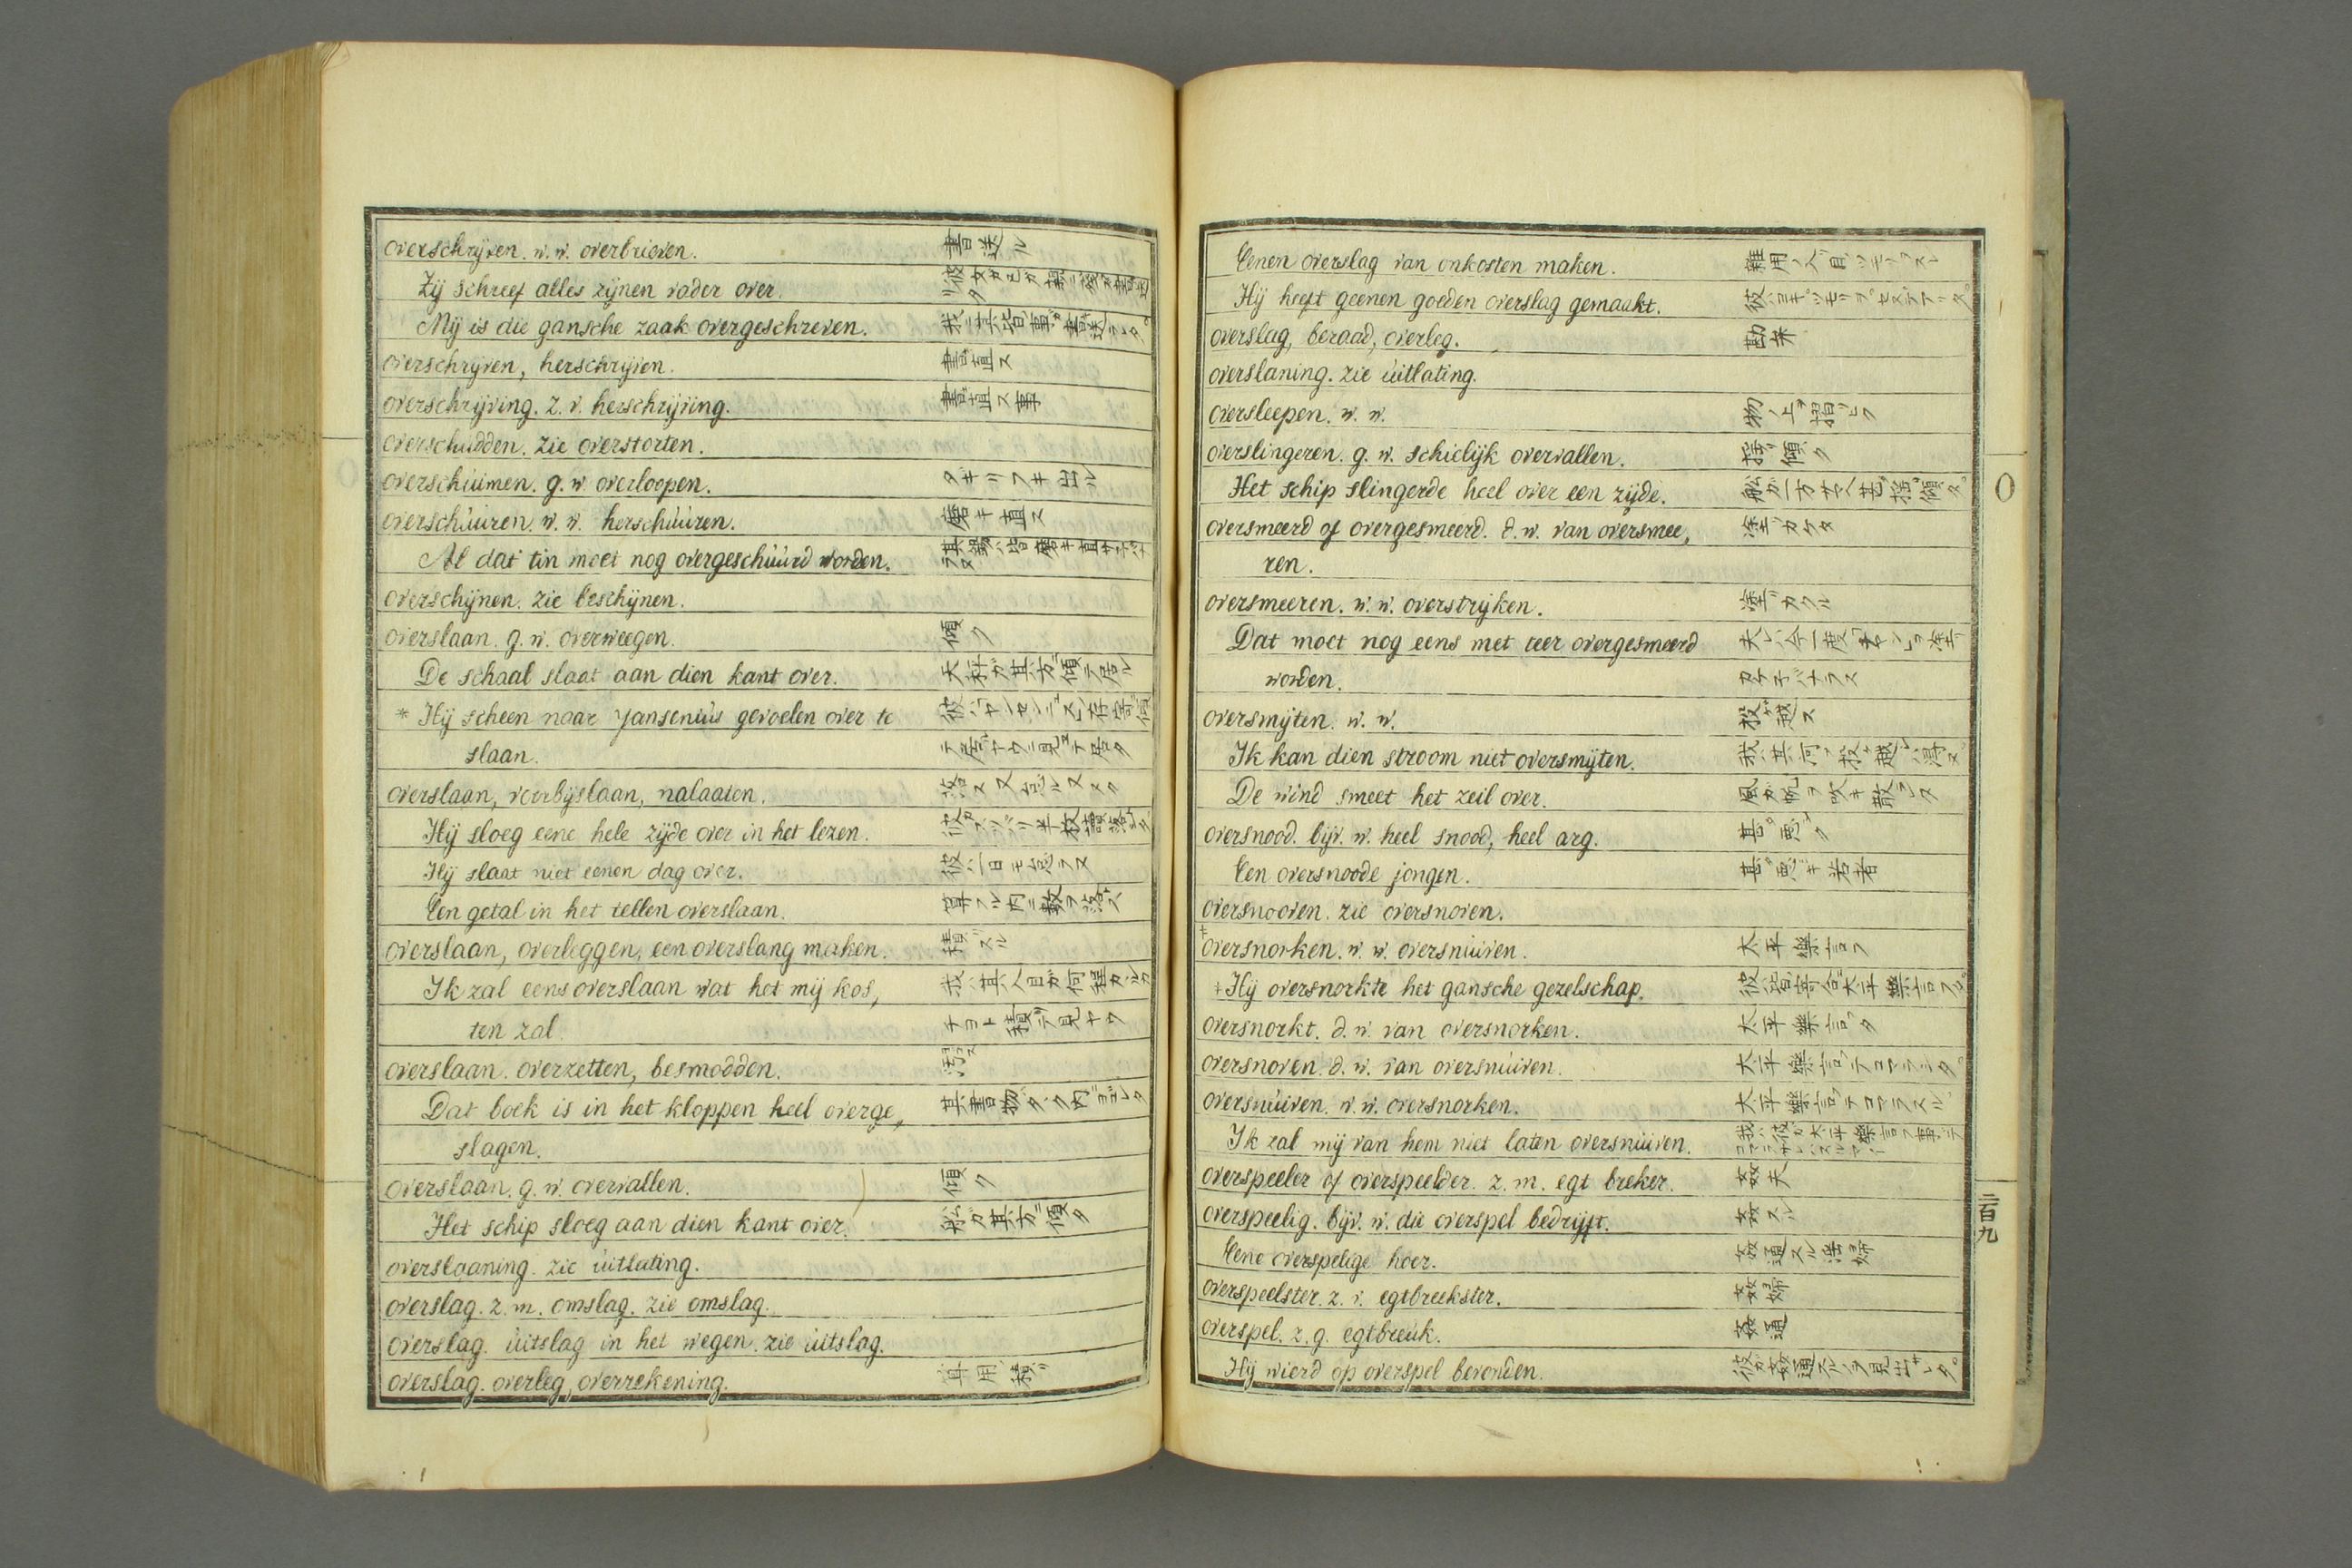 overschrijven. w. w. overbrieven. 書送ル
Zij schreef alles zijnen vader over.
Mij is die gansche zaak overgeschreven.
overschrijven, herschrijven. 書直ス
overschrijving. z. v. herschrijving. 書直ス事
overschudden. zie overstorten.
overschúimen. g. w. overloopen. タギリフキ出ル
overschúúren. w. w. herschúúren. 磨キ直ス
Al dat tin moet nog overgeschúúrd worden.
overschijnen. zie beschijnen.
overslaan. g. w. overweegen. 傾ク
De schaal slaat aan dien kant over. 天秤ガ其方ニ傾テ居ル
* Hij scheen naar Jansenius gevoelen over te
slaan.
overslaan, voorbijslaan, nalaaten.
Hij sloeg eene hele zijde over in het lezen.
Hij slaat niet eenen dag over. 彼ハ一日モ怠ラヌ
Een getal in het tellen overslaan. 算フル内ニ数ヲ落ス
overslaan, overleggen, een overslang maken. 積ズル
Ik zal eens overslaan wat het mij kos,
ten zal. チヨト積テ見ヤウ
overslaan. overzetten, besmodden. 汚ス
Dat boek is in het kloppen heel overge,
slagen.
overslaan. g. w. overvallen. 傾ク
Het schip sloeg aan dien kant over. 船ガ其方ニ傾タ
overslaaning. zie úitlating.
overslag. z. m. omslag. zie omslag.
overslag. úitslag in het wegen. zie úitslag.
overslag. overleg, overrekening. 算用積リ
Eenen overslag van onkosten maken.
Hij heeft geenen goeden overslag gemaakt.
overslag, beraad, overleg. 勘弁
overslaning. zie úitlating.
oversleepen. w. w. 物ノ上ヲ摺ヒク
overslingeren. g. w. schielijk overvallen. 揺傾ク
Het schip slingerde heel over een zijde.
oversmeerd of overgesmeerd. d. w. van oversmee, 塗カケタ
ren.
oversmeeren. w. w. overstrijken. 塗カクル
Dat moet nog eens met teer overgesmeerd
worden. カケ子バナラヌ
oversmijten. w. w. 投越ス
Ik kan dien stroom niet oversmijten. 我ハ其河ヲ投ゲ越シ得ヌ
De wind smeet het zeil over. 風ガ帆ヲ吹キ散シタ
oversnood. bijv. w. heel snood, heel arg. 甚ダ悪ク
Een oversnoode jongen. 甚ダ悪キ若者
oversnooven. zie oversnoven.
+ oversnorken. w. w. oversnúiven. 太平樂言フ
+ Hij oversnorkte het gansche gezelschap.
oversnorkt. d. w. van oversnorken. 太平樂言タ
oversnoven. d. w. van oversnúiven. 太平樂言テコマラシタ
oversnúiven. w. w. oversnorken. 太平樂言テコマラスル
Ik zal mij van hem niet laten oversnúiven.
overspeeler of overspeelder. z. m. egt breker. 姦夫
overspeelig. bijv. w. die overspel bedrijft. 姦スル
Eene overspelige hoer. 姦通スル淫婦
overspeelster. z. v. egtbreekster. 姦婦
overspel. z. g. egtbreúk. 姦通
Hij wierd op overspel bevonden. 彼ガ姦通スルヲ見出サレタ
二百九